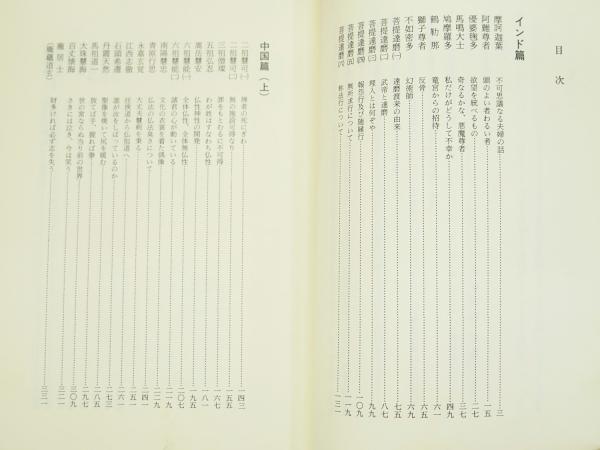 目次
インド篇
摩訶迦葉 不可思議なる夫婦の話 三
阿難尊者 頭のよい者わるい者 一五
優婆毱多 欲望を統べるもの 二七
馬鳴大士 奇なるかな、悪魔尊者 三七
鳩摩羅多 私だけがどうして不幸か 四九
鶴勒那 竜宮からの招待 六一
獅子尊者 反骨 六五
不如密多 幻術師
菩提達磨(一) 達磨渡来の由来 七五
菩提達磨(二) 武帝と達磨 八七
菩提達磨(三) 理入とは何ぞや 九九
菩提達磨(四) 報怨行及び随縁行 一〇九
菩提達磨(五) 無所求行について 一一九
菩提達磨(六) 称法行について 一三一
中国篇(上)
二祖慧可(一) 禅者の死にぎわ 一四三
二祖慧可(二) 無の施設可得なり 一五五
三祖僧燦 罪をもとむるに不可得 一六七
五祖弘忍 わが姓はすなわち仏性 一八一
嵩岳慧安 仏性神性の開発 一九五
六祖慧能(一) 全体仏性、全体無仏性 二〇七
六祖慧能(二) 諸君の心が動いた 二一七
南陽慧忠 文化の衣裳を着た偶像 二二九
青原行思 仏法の仏法臭さについて
永嘉玄覚 大丈夫慧剣を乗る 二五一
江西志徹 任俠道から仏祖道へ 二六一
石頭希遷 誰が汝をしばっているのか 二七三
丹霞天然 聖像を焼いて尻を暖む 二八五
馬祖道一 放てば手、握れば拳 二九七
大珠慧海 世の常ならぬ当り前の世界 三〇九
百丈懐海 さきには泣き、今は笑う 三二一
龐居士 財多ければ必ず志を失う 三三一